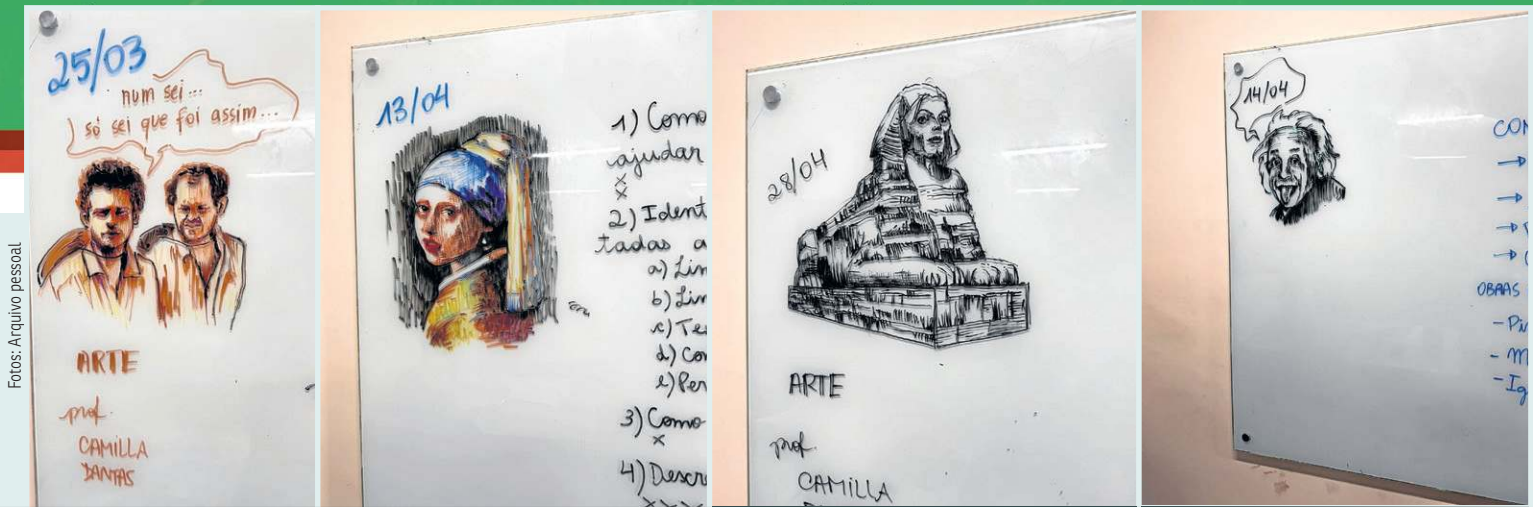 Fotos: Arquivo pessoal
25/03
num sei...
só sei que foi assim...
ARTE
prof.
CAMILLA
DANTAS
13/04
1) Como
ajudar
x
x
2) Ident
tadas a
a) Lin
b) Lin
c) Te
d) Con
e) Per
3) Como
x
4) Descr
xxxx
28/04
ARTE
prof.
CAMILLA
14/04
CON
→
→
→
→
OBRAS
- Pi
- M
- Ig